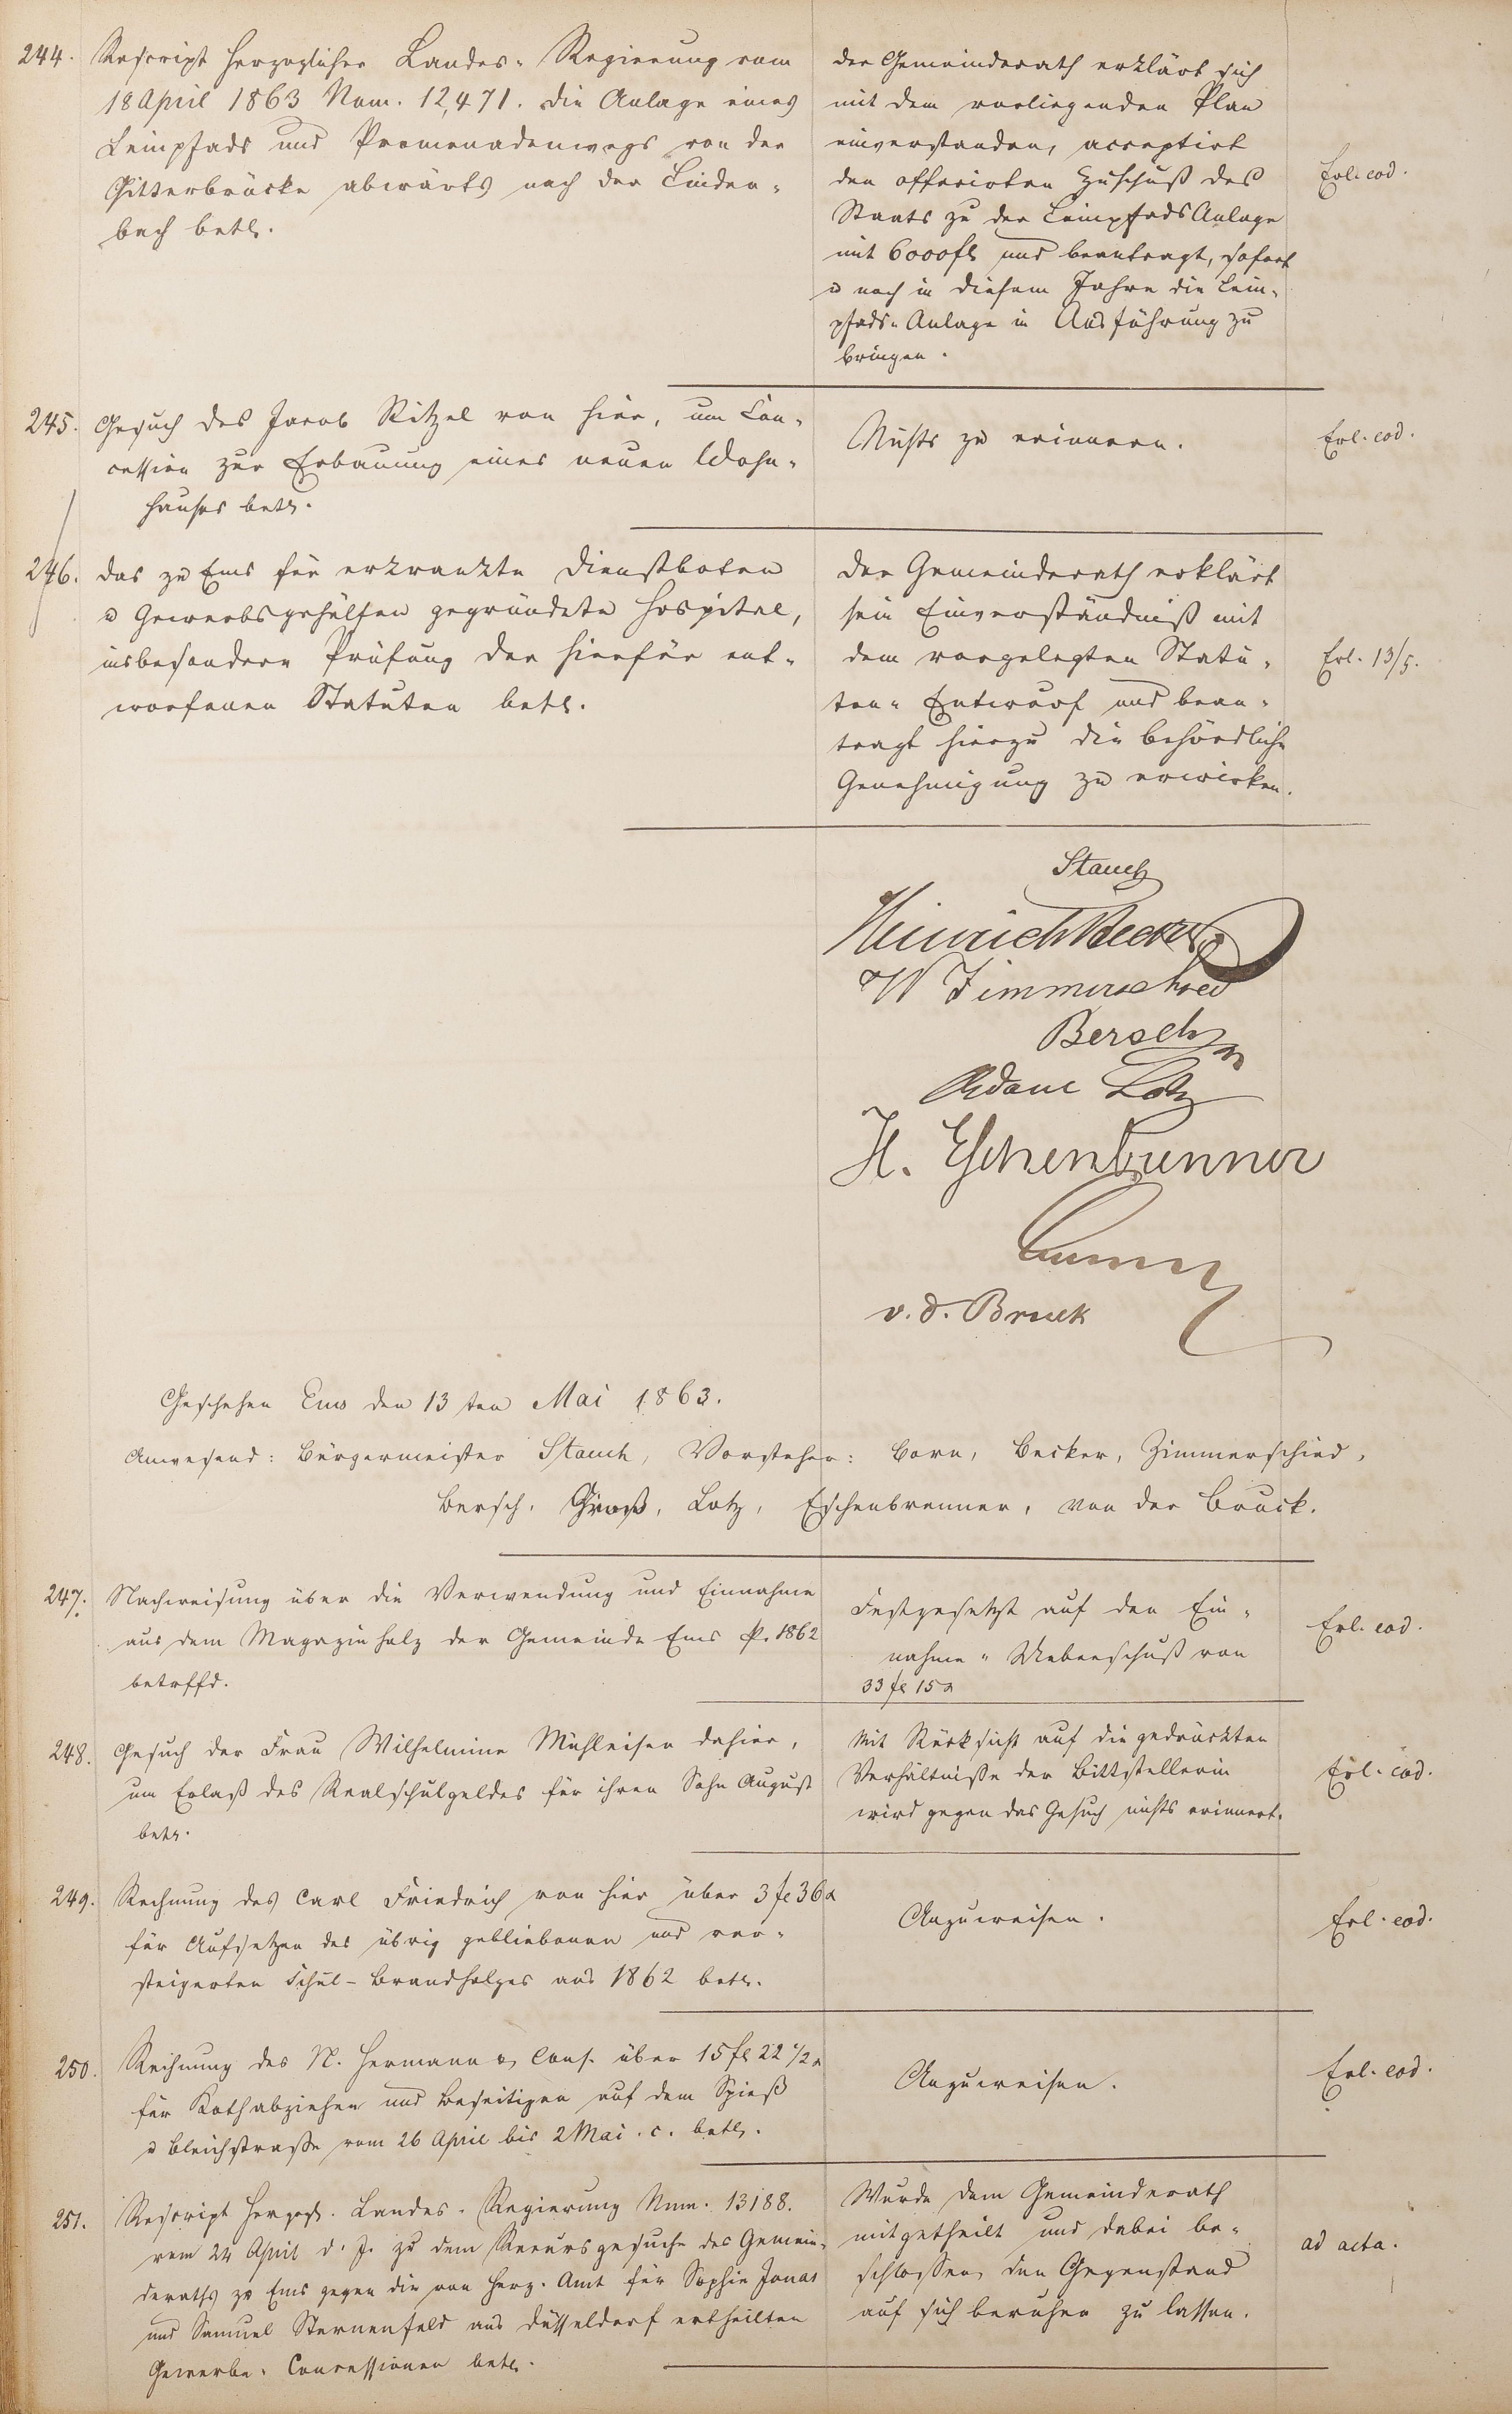 244. Rescript Herzoglicher Landes-Regierung vom
18 April 1863 Num. 12,471. die Anlage eines
Leinpfads und Promenadenwegs von der
Gitterbrücke abwärts nach der Linden-
bach betr.
der Gemeinderath erklärt sich
mit dem vorliegenden Plan
einverstanden, acceptirt
den offerirten Zuschuß des
Staats zu der Leinpfads Anlage
mit 6000 fl und beantragt, sofort
u noch in diesem Jahre die Lein-
pfads-Anlage in Ausführung zu
bringen.
Erl. eod.
245. Gesuch des Jacob Ritzel von hier, um Con-
cession zur Erbauung eines neuen Wohn-
hauses betr.
Nichts zu erinnern.
Erl. eod.
246. das zu Ems für erkrankte Dienstboten
u Gewerbsgehülfen gegründete Hospital,
insbesondere Prüfung der hierfür ent-
worfenen Statuten betr.
der Gemeinderath erklärt
sein Einverständniß mit
dem vorgelegten Statu-
ten-Entwurf und bean-
tragt hierzu die behördliche
Genehmigung zu erwirken.
Erl. 13/5.
Stauch
Heinrich Becker
W Zimmerschied
Bersch
Adam Lotz
H. Eschenbrenner
v. d. Bruck
Geschehen Ems den 13ten Mai 1863.
Anwesend: Bürgermeister Stauch, Vorsteher: Born, Becker, Zimmerschied,
Bersch, Groß, Lotz, Eschenbrenner, von der Bruck.
247. Nachweisung über die Verwendung und Einnahme
aus dem Magazinholz der Gemeinde Ems p. 1862
betrffd.
Festgesetzt auf den Ein-
nahme-Ueberschuß von
33 fl 15 x
Erl. eod.
248. Gesuch der Frau Wilhelmine Mühleisen dahier,
um Erlaß des Realschulgeldes für ihren Sohn August
betr.
Mit Rücksicht auf die gedrückten
Verhältniße der Bittstellerin
wird gegen das Gesuch nichts erinnert.
Erl. eod.
249. Rechnung des Carl Friedrich von hier über 3 fl 36 x
für Aufsetzen des übrig gebliebenen und ver-
steigerten Schul-Brandholzes aus 1862 betr.
Anzuweisen.
Erl. eod.
250. Rechnung des N. Hermann & Cons. über 15 fl 22 1/2 x
für Kothabziehen und Beseitigen auf dem Spieß
u Bleichstraße vom 26 April bis 2 Mai. c. betr.
Anzuweisen.
Erl. eod.
251. Rescript Herzogl. Landes-Regierung Num. 13188.
vom 24 April d. J. zu dem Recursgesuche des Gemein-
deraths zu Ems gegen die von Herz. Amt für Sophie Jonas
und Samuel Sternenfeld aus Düsseldorf ertheilten
Gewerbe-Concessionen betr.
Wurde dem Gemeinderath
mitgetheilt und dabei be-
schlossen, den Gegenstand
auf sich beruhen zu lassen.
ad acta.